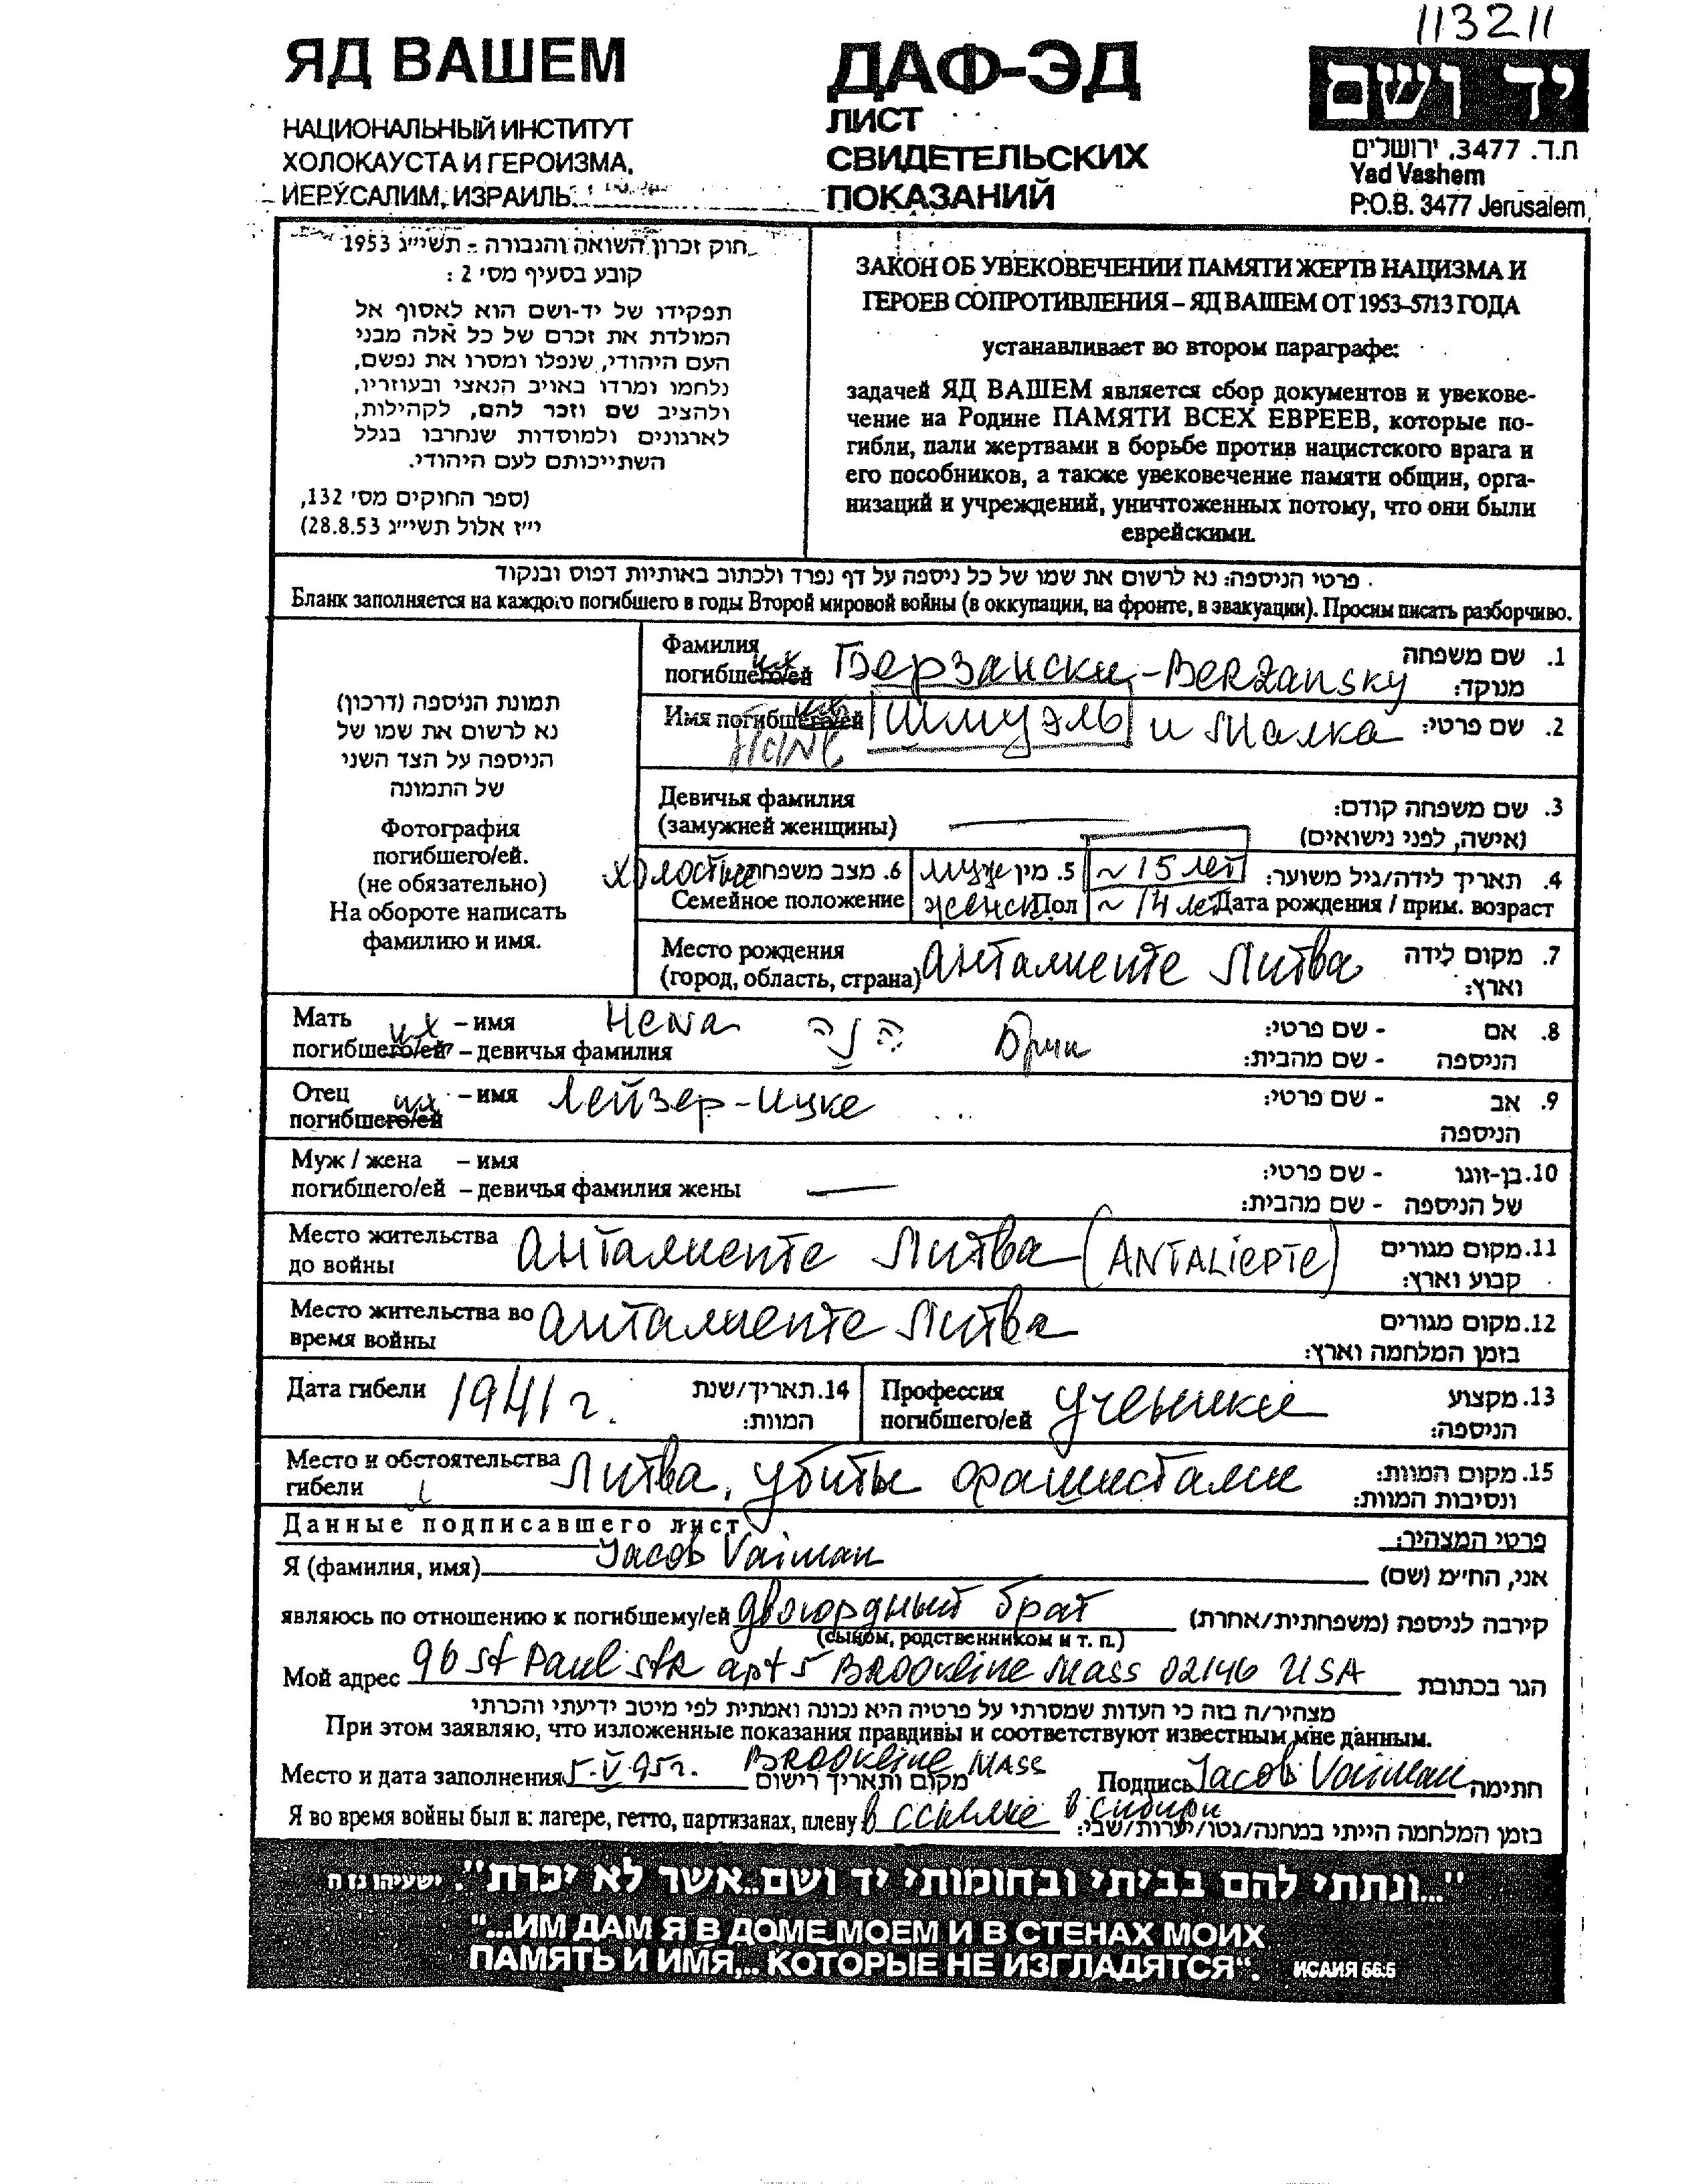 113211
ЯД ВАШЕМ
НАЦИОНАЛЬНЫЙ ИНСТИТУТ
ХОЛОКАУСТА И ГЕРОИЗМА,
ИЕРУСАЛИМ, ИЗРАИЛЬ
ДАФ-ЭД
ЛИСТ
СВИДЕТЕЛЬСКИХ
ПОКАЗАНИЙ
יד ושם
ת.ד. 3477, ירושלים
Yad Vashem
P.O.B. 3477 Jerusalem
חוק זכרון השואה והגבורה - תשי״ג 1953
קובע בסעיף מס׳ 2 :
תפקידו של יד-ושם הוא לאסוף אל
המולדת את זכרם של כל אלה מבני
העם היהודי, שנפלו ומסרו את נפשם,
נלחמו ומרדו באויב הנאצי ובעוזריו,
ולהציב שם וזכר להם, לקהילות,
לארגונים ולמוסדות שנחרבו בגלל
השתייכותם לעם היהודי.
(ספר החוקים מס׳ 132,
י״ז אלול תשי״ג 28.8.53)
ЗАКОН ОБ УВЕКОВЕЧЕНИИ ПАМЯТИ ЖЕРТВ НАЦИЗМА И
ГЕРОЕВ СОПРОТИВЛЕНИЯ – ЯД ВАШЕМ ОТ 1953–5713 ГОДА
устанавливает во втором параграфе:
задачей ЯД ВАШЕМ является сбор документов и увекове-
чение на Родине ПАМЯТИ ВСЕХ ЕВРЕЕВ, которые по-
гибли, пали жертвами в борьбе против нацистского врага и
его пособников, а также увековечение памяти общин, орга-
низаций и учреждений, уничтоженных потому, что они были
еврейскими.
פרטי הניספה: נא לרשום את שמו של כל ניספה על דף נפרד ולכתוב באותיות דפוס ובנקוד
Бланк заполняется на каждого погибшего в годы Второй мировой войны (в оккупации, на фронте, в эвакуации). Просим писать разборчиво.
תמונת הניספה (דרכון)
נא לרשום את שמו של
הניספה על הצד השני
של התמונה
Фотография
погибшего/ей.
(не обязательно)
На обороте написать
фамилию и имя.
Фамилия их
погибшего/ей Берзански - Berzansky
1. שם משפחה
מנוקד:
Имя погибшего/ей их Шмуэль и Малка 2. שם פרטי:
Девичья фамилия
(замужней женщины)
3. שם משפחה קודם:
(אישה, לפני נישואים)
холостые 6. מצב משפחתי муж 5. מין ~ 15 лет 4. תאריך לידה/גיל משוער:
Семейное положение женск Пол ~ 14 лет Дата рождения / прим. возраст
Место рождения
(город, область, страна) Анталиепте Литва
7. מקום לידה
וארץ:
Мать их – имя Hena הנה Брин
погибшего/ей – девичья фамилия
8. אם - שם פרטי:
הניספה - שם מהבית:
Отец их – имя Лейзер-Ицке
погибшего/ей
9. אב - שם פרטי:
הניספה
Муж / жена – имя
погибшего/ей – девичья фамилия жены
10. בן-זוגו - שם פרטי:
של הניספה - שם מהבית:
Место жительства
до войны Анталиепте Литва (ANTALIEPTE)
11. מקום מגורים
קבוע וארץ:
Место жительства во
время войны Анталиепте Литва
12. מקום מגורים
בזמן המלחמה וארץ:
Дата гибели 1941 г. 14. תאריך/שנת
המוות:
Профессия
погибшего/ей ученики
13. מקצוע
הניספה:
Место и обстоятельства
гибели Литва, убиты фашистами
15. מקום המוות:
ונסיבות המוות:
Данные подписавшего лист
פרטי המצהיר:
Я (фамилия, имя) Jacob Vaiman אני, החי״מ (שם)
являюсь по отношению к погибшему/ей двоюродный брат קירבה לניספה (משפחתית/אחרת)
(сыном, родственником и т. п.)
Мой адрес 96 St Paul Str apt 5 Brookline Mass 02146 USA הגר בכתובת
מצהיר/ה בזה כי העדות שמסרתי על פרטיה היא נכונה ואמתית לפי מיטב ידיעתי והכרתי
При этом заявляю, что изложенные показания правдивы и соответствуют известным мне данным.
Место и дата заполнения 5.V.95г. Brookline Mass מקום ותאריך רישום Подпись Jacob Vaiman חתימה
Я во время войны был в: лагере, гетто, партизанах, плену в ссылке в Сибири בזמן המלחמה הייתי במחנה/גטו/יערות/שבי:
"...ונתתי להם בביתי ובחומותי יד ושם..אשר לא יכרת". ישעיהו נו ה
"...ИМ ДАМ Я В ДОМЕ МОЕМ И В СТЕНАХ МОИХ
ПАМЯТЬ И ИМЯ,.. КОТОРЫЕ НЕ ИЗГЛАДЯТСЯ". ИСАИЯ 56:5